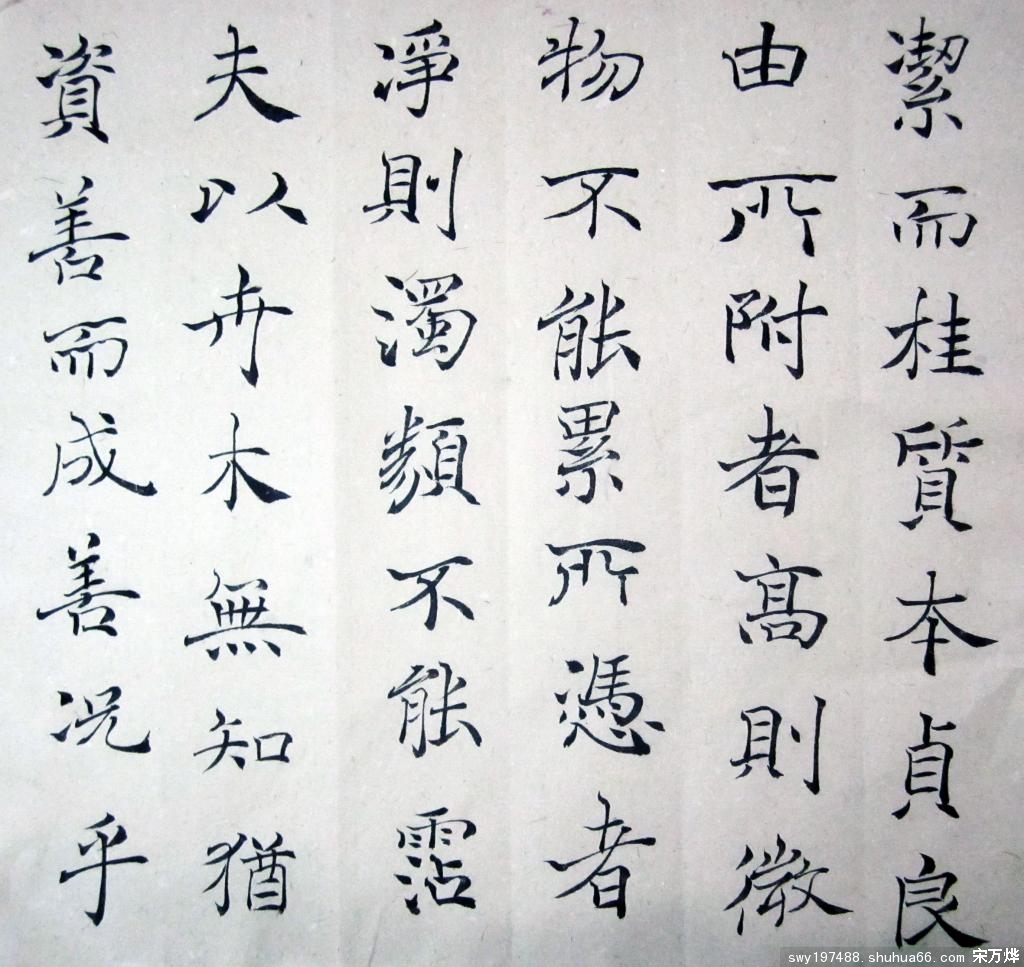 潔而桂質本貞良
由所附者高則微
物不能累所憑者
淨則濁類不能霑
夫以卉木無知猶
資善而成善況乎
swy197488. shuhua66. com 宋万烨